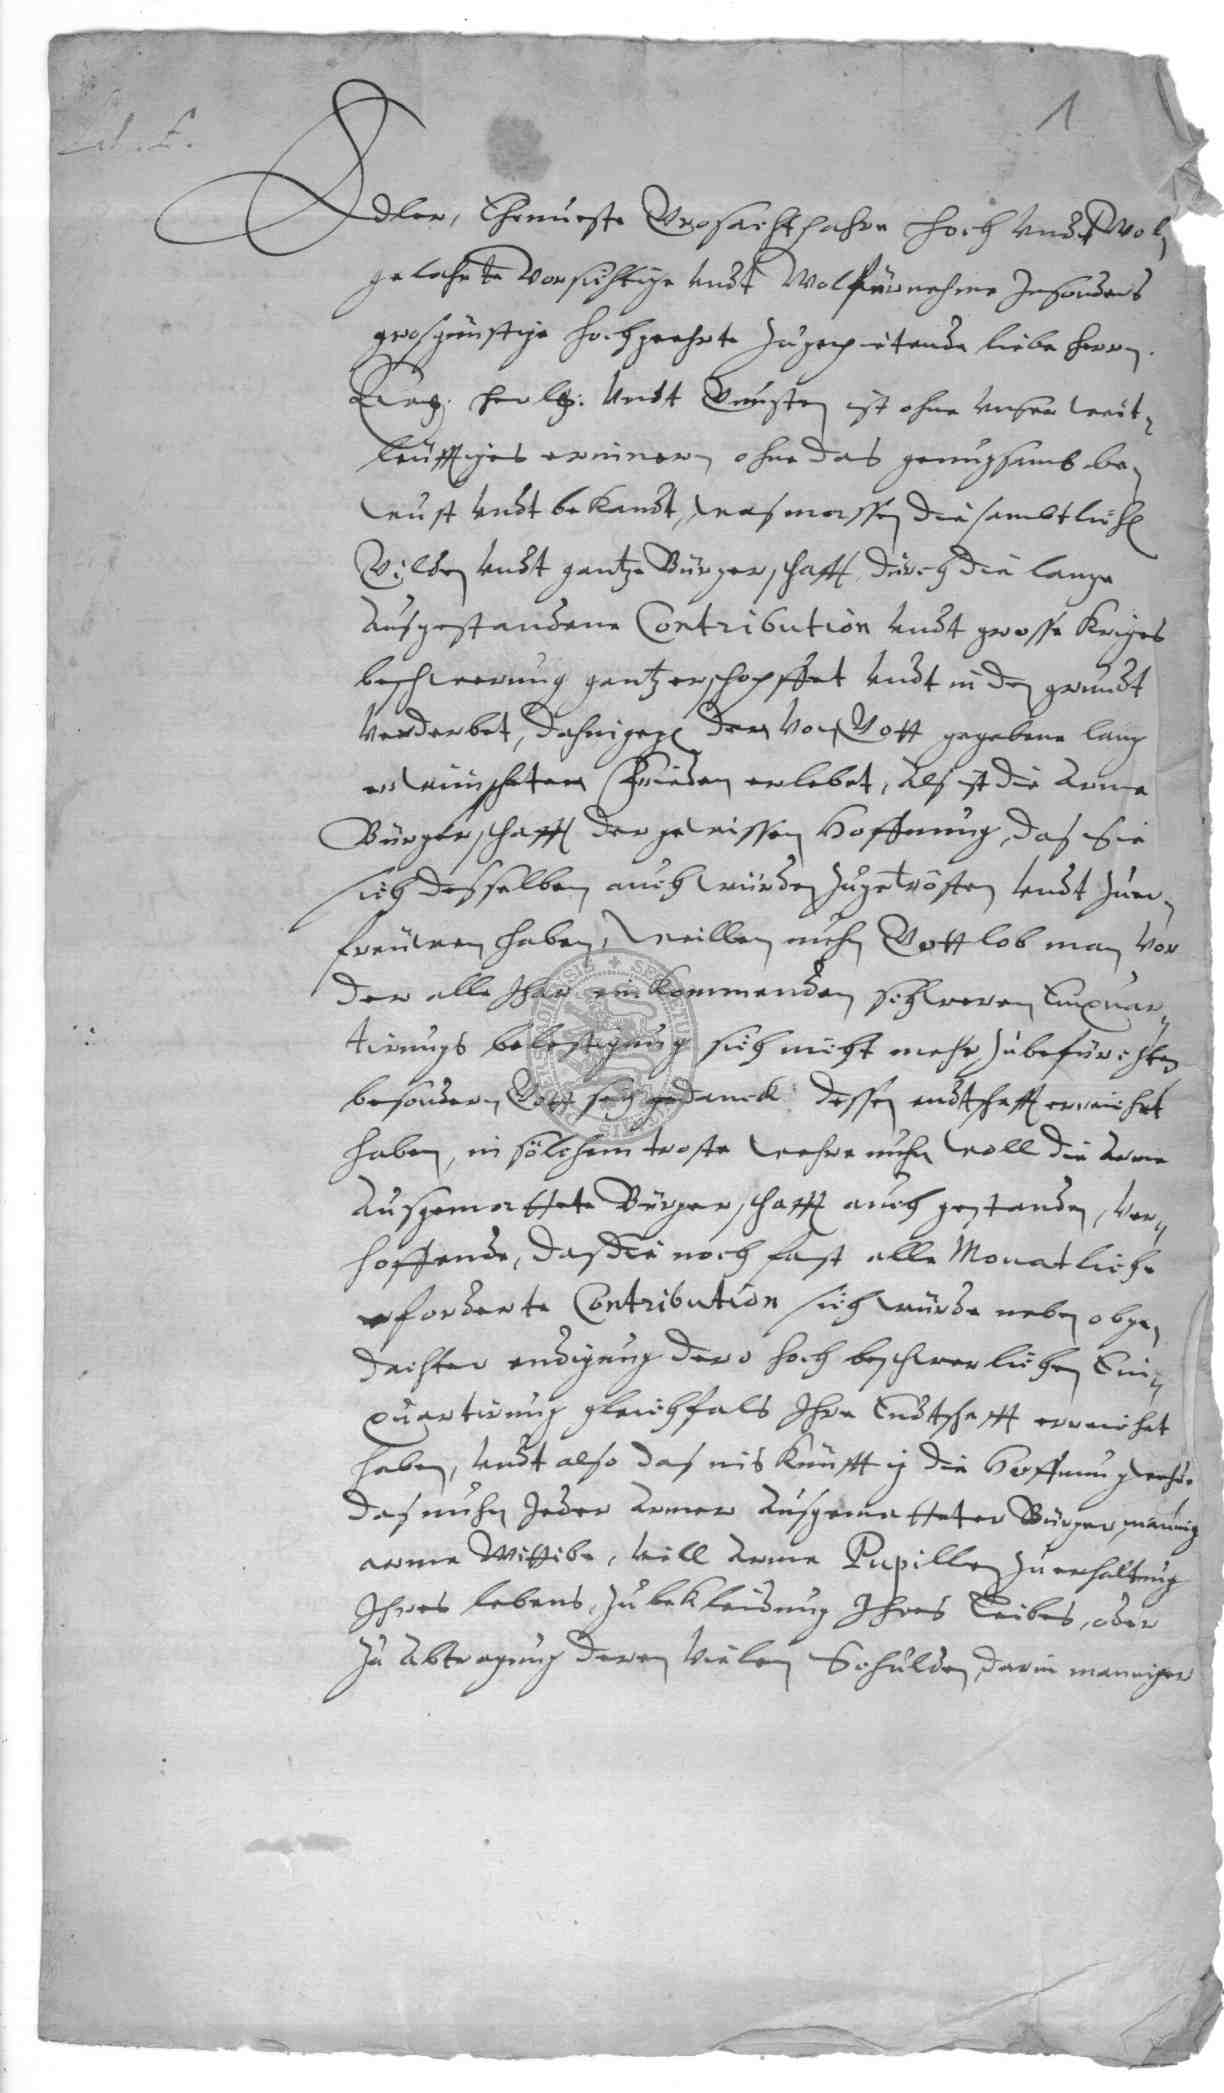 1
Edler, Ehrnueste Grosachtbahre hoch vndt Wol
gelahrte Vorsichtige vndt Wolfürnehme Insonders
grosgünstige hochgeehrte Zugepietende liebe herrn.
vndt Gunsten ist ohne vnser weit-
leufftiges erinnern ohne das genugsamb be-
wust vndt bekandt, wasmassen die sambtliche
Gilden vndt gantze Bürgerschafft, durch die lange
Ausgestandene Contribution vndt grosse Kriges
beschwerung gantz erschopffet vndt in den grundt
Verderbet, dahingegen den von Gott gegebene lang
erwünscheten Frieden erlebet, Als ist die Arme
Bürgerschafft der gewissen Hoffnung, das Sie
sich desselben auch würden zugetrösten vndt zuer-
freüwen haben, weillen nuhn Gott lob man vor
der alle Jhar einkommenden schweren Einquar-
tirungs belestigung sich nicht mehr zubefürchten
besondern Gott sey gedanck dessen endtschafft erreichet
haben, in sölchem troste wehre nuhn woll die Arme
Ausgemattete Bürgerschafft auch gestanden, ver-
hoffende, das die noch fast alle Monatliche
erforderte Contribution sich würde neben obge-
dachter endigung dero hoch beschwerlichen Ein-
quartirung gleichfals Ihre Endtschafft erreichet
haben, vndt also das ins Künfftig die Hoffnung wehre
das nuhn Jeder Armer Ausgematteter Bürger, mannig
arme Wittibe, vill Arme Pupillen zu erhaltung
Ihres lebens, zu bekleidung Ihres Leibes, oder
zu Abtragung deren vielen Schulden, darin manniger